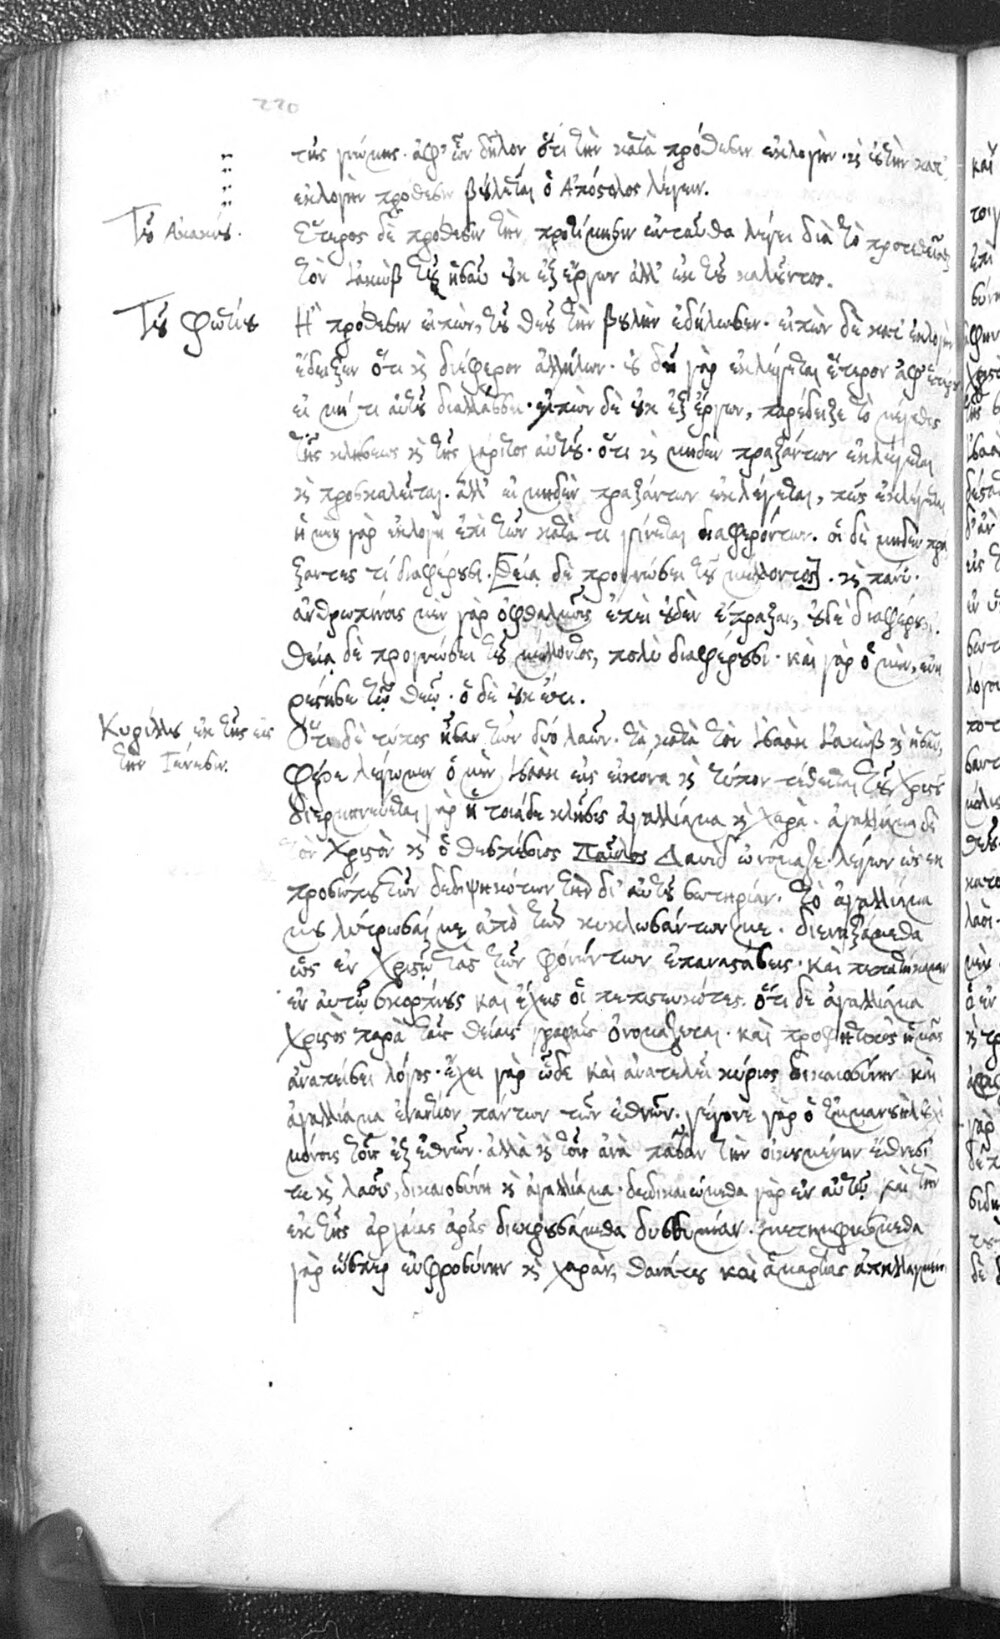 220
τῆς γνώμης. ἀφ' ὧν δῆλον ὅτι τὴν κατὰ πρόθεσιν ἐκλογὴν. κὶ ȣ̓ τὴν κατ'
ἐκλογὴν πρόθεσιν βȣ́λεται ὁ Ἀπόστολος λέγειν.
Τȣ͂ Ἀκακίȣ.
Ἕτερος δὲ πρόθεσιν τὴν προτίμησιν ἐνταῦθα λέγει διὰ τὸ προτεθεῖσθαι
τὸν Ἰακὼβ τȣ͂ ἠσαῦ ȣ̓κ ἐξ ἔργων ἀλλ' ἐκ τȣ͂ καλȣ͂ντος.
Τȣ͂ Φωτίȣ
Ἡ πρόθεσιν εἰπὼν, τȣ͂ θεȣ͂ τὴν βȣλὴν ἐδήλωσεν. εἰπὼν δὲ κατ' ἐκλογὴν
ἔδειξεν ὅτι κὶ διέφερον ἀλλήλων. ȣ̓ δεὶς γὰρ ἐκλέγεται ἕτερον ἀφ' ἑτέρȣ
εἰ μή τι αὐτȣ͂ διαλλάσσει. εἰπὼν δὲ ȣ̓κ ἐξ ἔργων, παρέδειξε τὸ μέγεθος
τῆς κλήσεως κὶ τῆς χάριτος αὐτȣ͂. ὅτι κὶ μηδὲν πραξάντων ἐκλέγεται
κὶ προσκαλεῖται. ἀλλ' εἰ μηδὲν πραξάντων ἐκλέγεται, πῶς ἐκλέγεται
ἡ μὲν γὰρ ἐκλογὴ ἐπὶ τῶν κατά τι γίνεται διαφερόντων. οἱ δὲ μηδὲν πρα
ξαντες τί διαφέρȣσι. [Θείᾳ δὲ προγνώσει τȣ͂ μέλλοντος]. κὶ πάνυ.
ἀνθρωπίνοις μὲν γὰρ ὀφθαλμοῖς ἐπεὶ ȣ̓δὲν ἔπραξαν, ȣ̓δὲ διαφέρȣσι.
θείᾳ δὲ προγνώσει τȣ͂ μέλλοντος, πολὺ διαφέρȣσι. καὶ γὰρ ὁ μὲν, εὐη
ρέστησε τῷ θεῷ. ὁ δὲ ȣ̓κ ἔτι.
Κυρίλλȣ ἐκ τῆς εἰς
τὴν Γένεσιν.
Ὅτι δὲ τύπος ἦσαν τῶν δύο λαῶν. τὰ κατὰ τὸν Ἰσαὰκ Ἰακὼβ κὶ ἠσαῦ,
φέρε λέγωμεν ὁ μὲν Ἰσαὰκ εἰς εἰκόνα κὶ τύπον τέθειται τȣ͂ Χριστȣ͂
διερμηνεύεται γὰρ ἡ τοιάδε κλῆσις ἀγαλλίαμα κὶ χαρὰ. ἀγαλλίαμα δὲ
τὸν Χριστὸν κὶ ὁ θεσπέσιος Παῦλος Δαυὶδ ὠνόμαζε. λέγων ὡς ἐκ
προσώπȣ τῶν δεδιψηκότων τὴν δι' αὐτȣ͂ σωτηρίαν. τὸ ἀγαλλίαμα
μȣ λύτρωσαί με ἀπὸ τῶν κυκλωσάντων με. διενηξάμεθα
ὡς ἐν Χριστῷ τὰς τῶν φονώντων ἐπαναστάσεις. καὶ πεπατήκαμεν
ἐν αὐτῷ σκορπίȣς καὶ ἔχεις οἱ πεπιστευκότες. ὅτι δὲ ἀγαλλίαμα
Χριστὸς παρὰ ταῖς θείαις γραφαῖς ὀνομάζεται. καὶ προφητικὸς ἡμᾶς
ἀναπείσει λόγος. ἔχει γὰρ ὧδε καὶ ἀνατελεῖ κύριος δικαιοσύνην καὶ
ἀγαλλίαμα ἐναντίον πάντων τῶν ἐθνῶν. γέγονε γὰρ ὁ Ἐμμανȣὴλ ȣ̓χὶ
μόνοις τοῖς ἐξ ἐθνῶν. ἀλλὰ κὶ τοῖς ἀνὰ πᾶσαν τὴν οἰκȣμένην ἔθνεσί
τε κὶ λαοῖς, δικαιοσύνη κὶ ἀγαλλίαμα. δεδικαιώμεθα γὰρ ἐν αὐτῷ καὶ τὴν
ἐκ τῆς ἀρχαίας ἀρᾶς διεκρȣσάμεθα δυσθυμίαν. μετημφιέσμεθα
γὰρ ὥσπερ εὐφροσύνην κὶ χαρὰν, θανάτȣ καὶ ἁμαρτίας ἀπηλλαγμένοι